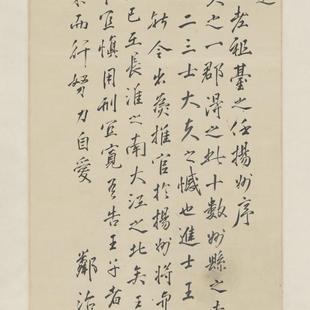 祖臺之任揚州序
之一郡得之於十數州縣之
二三士大夫之憾也進士王
令出推官於揚州將
已至長淮之南大江之北矣王
宜慎用刑宜寬告王子者
而行努力自愛
鄰治